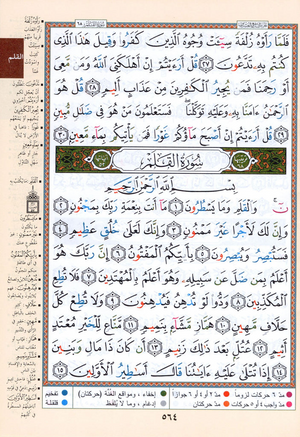 فَلَمَّا رَأَوْهُ زُلْفَةً سِيٓـَٔتْ وُجُوهُ ٱلَّذِينَ كَفَرُوا۟ وَقِيلَ هَٰذَا ٱلَّذِى
كُنتُم بِهِۦ تَدَّعُونَ ٢٧ قُلْ أَرَءَيْتُمْ إِنْ أَهْلَكَنِىَ ٱللَّهُ وَمَن مَّعِىَ
أَوْ رَحِمَنَا فَمَن يُجِيرُ ٱلْكَٰفِرِينَ مِنْ عَذَابٍ أَلِيمٍ ٢٨ قُلْ هُوَ
ٱلرَّحْمَٰنُ ءَامَنَّا بِهِۦ وَعَلَيْهِ تَوَكَّلْنَا فَسَتَعْلَمُونَ مَنْ هُوَ فِى ضَلَٰلٍ مُّبِينٍ
٢٩ قُلْ أَرَءَيْتُمْ إِنْ أَصْبَحَ مَآؤُكُمْ غَوْرًا فَمَن يَأْتِيكُم بِمَآءٍ مَّعِينٍ ٣٠
سُورَةُ القَلَمِ
بِسْمِ ٱللَّهِ ٱلرَّحْمَٰنِ ٱلرَّحِيمِ
نٓ وَٱلْقَلَمِ وَمَا يَسْطُرُونَ ١ مَآ أَنتَ بِنِعْمَةِ رَبِّكَ بِمَجْنُونٍ ٢
وَإِنَّ لَكَ لَأَجْرًا غَيْرَ مَمْنُونٍ ٣ وَإِنَّكَ لَعَلَىٰ خُلُقٍ عَظِيمٍ ٤
فَسَتُبْصِرُ وَيُبْصِرُونَ ٥ بِأَييِّكُمُ ٱلْمَفْتُونُ ٦ إِنَّ رَبَّكَ هُوَ
أَعْلَمُ بِمَن ضَلَّ عَن سَبِيلِهِۦ وَهُوَ أَعْلَمُ بِٱلْمُهْتَدِينَ ٧ فَلَا تُطِعِ
ٱلْمُكَذِّبِينَ ٨ وَدُّوا۟ لَوْ تُدْهِنُ فَيُدْهِنُونَ ٩ وَلَا تُطِعْ كُلَّ
حَلَّافٍ مَّهِينٍ ١٠ هَمَّازٍ مَّشَّآءٍۭ بِنَمِيمٍ ١١ مَّنَّاعٍ لِّلْخَيْرِ مُعْتَدٍ
أَثِيمٍ ١٢ عُتُلٍّۭ بَعْدَ ذَٰلِكَ زَنِيمٍ ١٣ أَن كَانَ ذَا مَالٍ وَبَنِينَ
١٤ إِذَا تُتْلَىٰ عَلَيْهِ ءَايَٰتُنَا قَالَ أَسَٰطِيرُ ٱلْأَوَّلِينَ ١٥
مدّ ٦ حركات لزوماً مدّ ٢ أو ٤ أو ٦ جوازاً
مدّ واجب ٤ أو ٥ حركات مدّ حركتان
إخفاء، ومواقع الغُنَّة (حركتان)
إدغام، وما لا يُلفَظ
تفخيم
قلقلة
٥٦٤
القلم